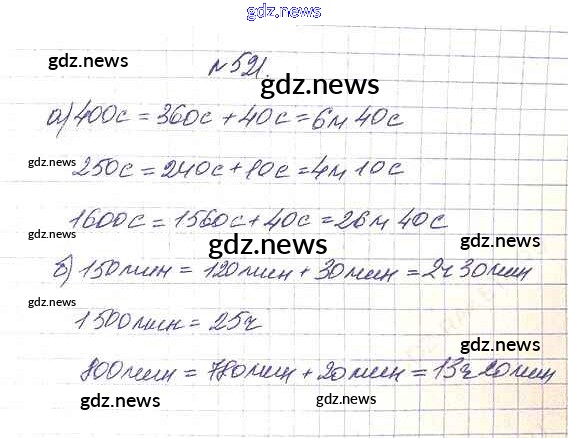 gdz.news
№ 521.
gdz.news
gdz.news
а) 400с = 360с + 40с = 6м 40с
gdz.news
250с = 240с + 10с = 4м 10с
1600с = 1560с + 40с = 26м 40с
gdz.news
gdz.news
gdz.news
б) 150мин = 120мин + 30мин = 2ч 30мин
gdz.news
1500мин = 25ч
gdz.news
800мин = 780мин + 20мин = 13ч 20мин
gdz.news
gdz.news
gdz.news